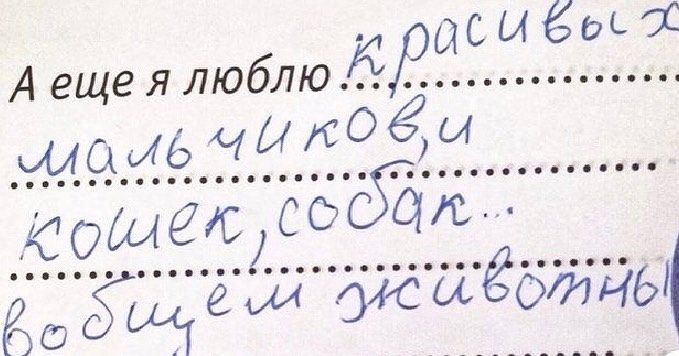 А еще я люблю красивых
мальчиков, и
кошек, собак...
вобщем животны